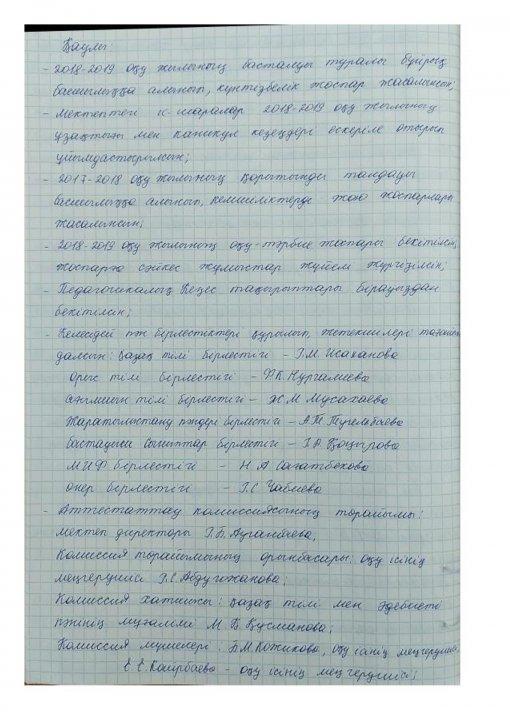 Қаулы:
- 2018-2019 оқу жылының басталуы туралы бұйрық
басшылыққа алынып, күнтізбелік жоспар жасалынсын;
- Мектептегі іс-шаралар 2018-2019 оқу жылының
ұзақтығы мен каникул кезеңдері ескеріле отырып
ұйымдастырылсын;
- 2017-2018 оқу жылының қорытынды талдауы
басшылыққа алынып, кемшіліктерді жою жоспарлары
жасалынсын;
- 2018-2019 оқу жылының оқу-тәрбие жоспары бекітілсін,
жоспарға сәйкес жұмыстар жүйелі жүргізілсін;
- Педагогикалық Кеңес тақырыптары бірауыздан
бекітілсін;
- Келесідей пән бірлестіктері құрылып, жетекшілері
далсын: Қазақ тілі бірлестігі - Исаханова
Орыс тілі бірлестігі - Нургалиева
Ағылшын тілі бірлестігі - Ж М Мусахаева
Жаратылыстану пәндері бірлестігі - А
Бастауыш сыныптар бірлестігі -
МИФ бірлестігі - Н А Сағатбекова
Өнер бірлестігі -
- Аттестаттау комиссиясының төрайымы:
мектеп директоры
Комиссия төрайымының орынбасары: оқу ісінің
меңгерушісі
Комиссия хатшысы: қазақ тілі мен әдебиеті
пәнінің мұғалімі М Қ Құсманова;
Комиссия мүшелері: Б М Кожикова, оқу ісінің меңгерушісі
Е Е Каирбаева - оқу ісінің меңгерушісі;